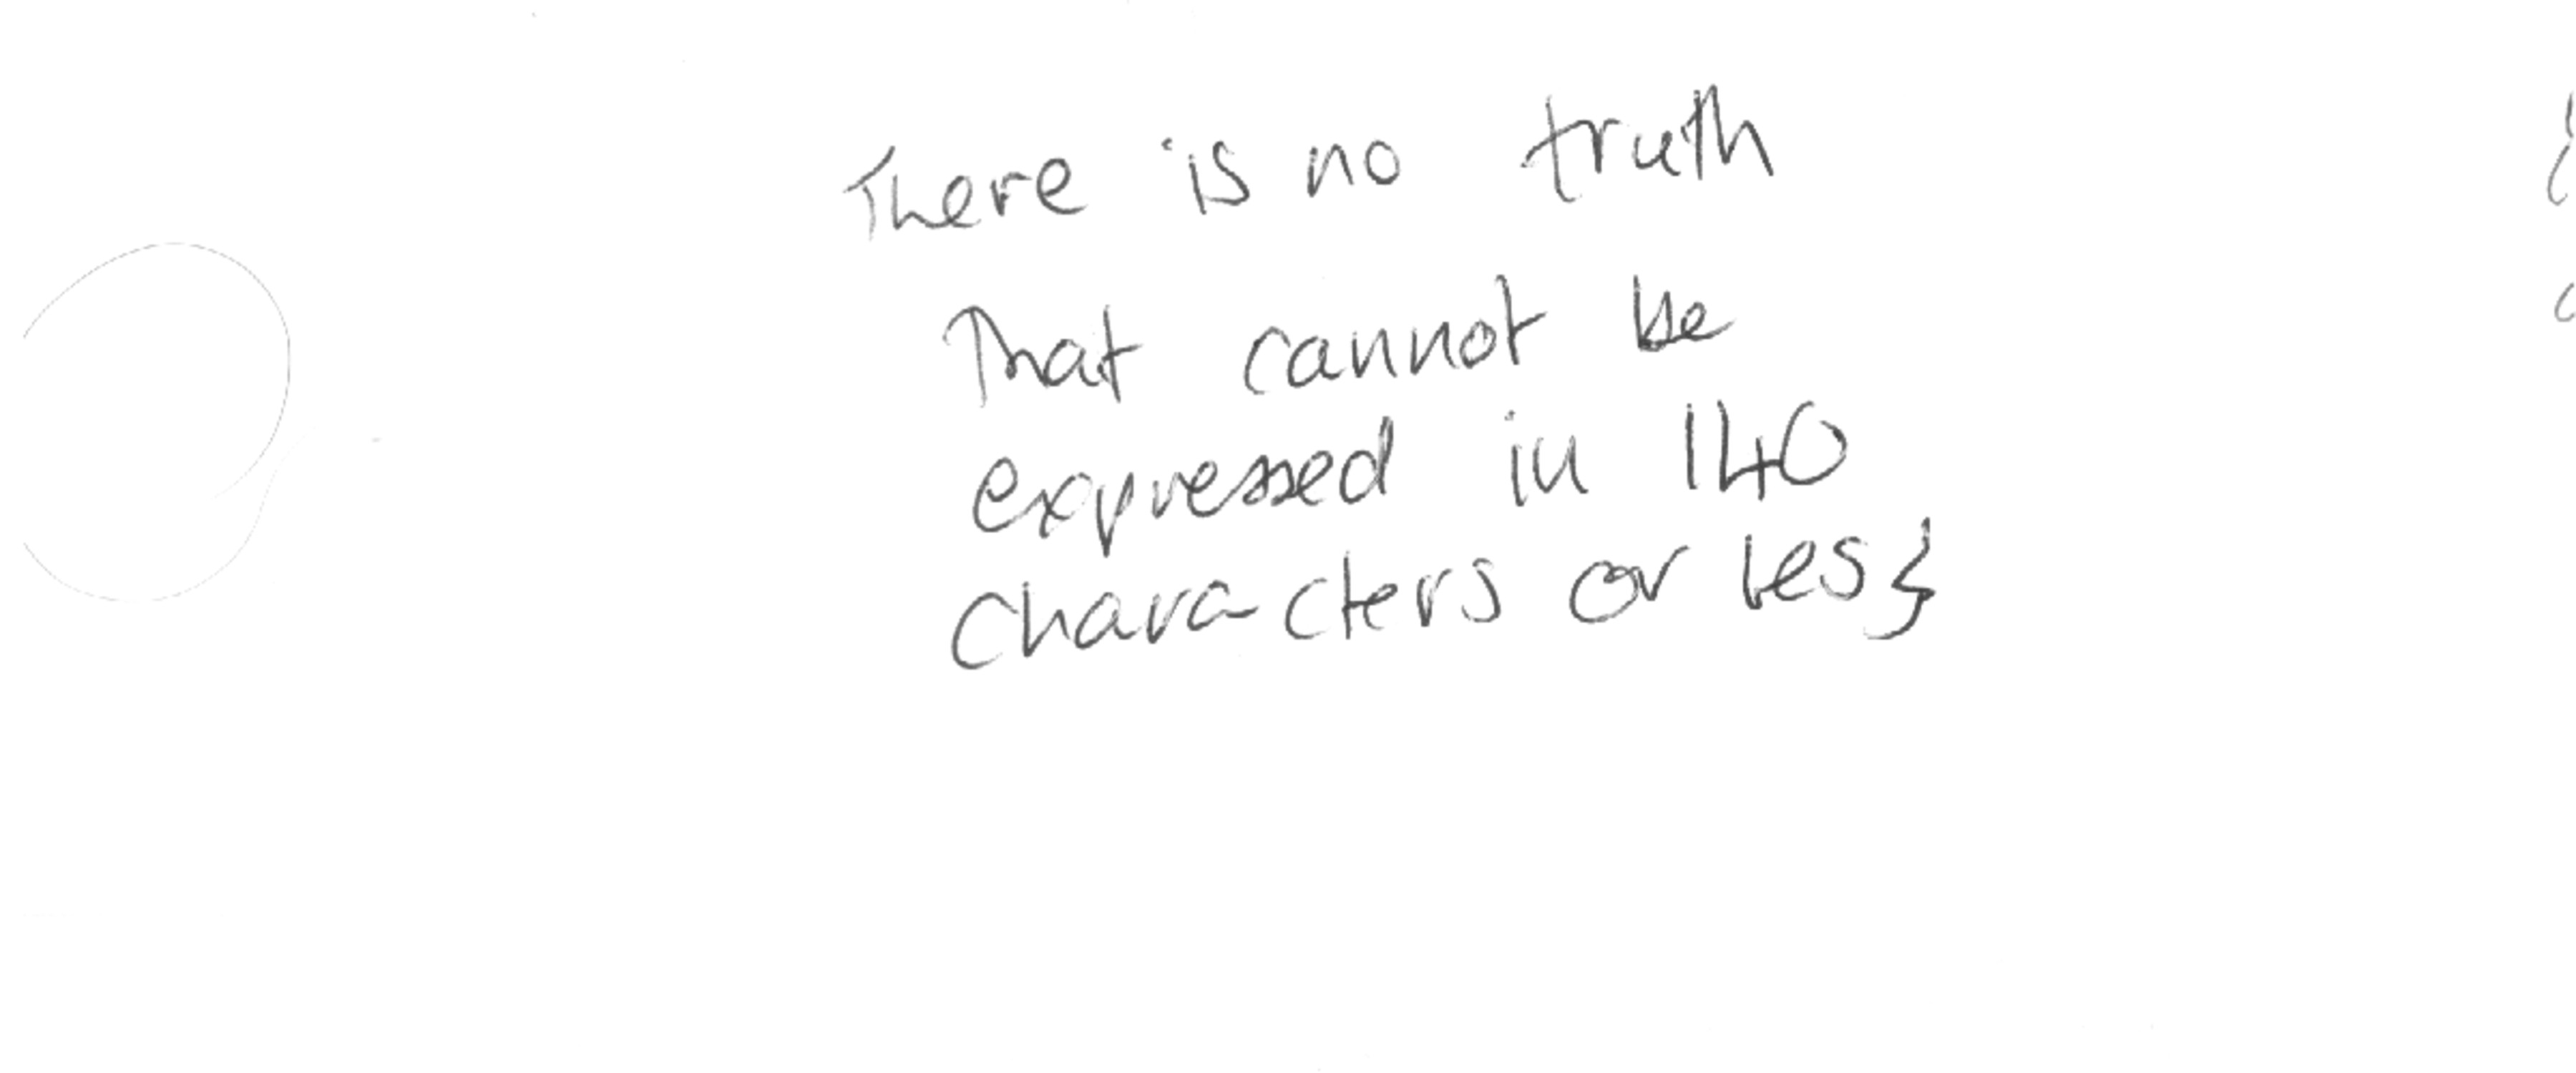 There is no truth
That cannot be
expressed in 140
characters or less